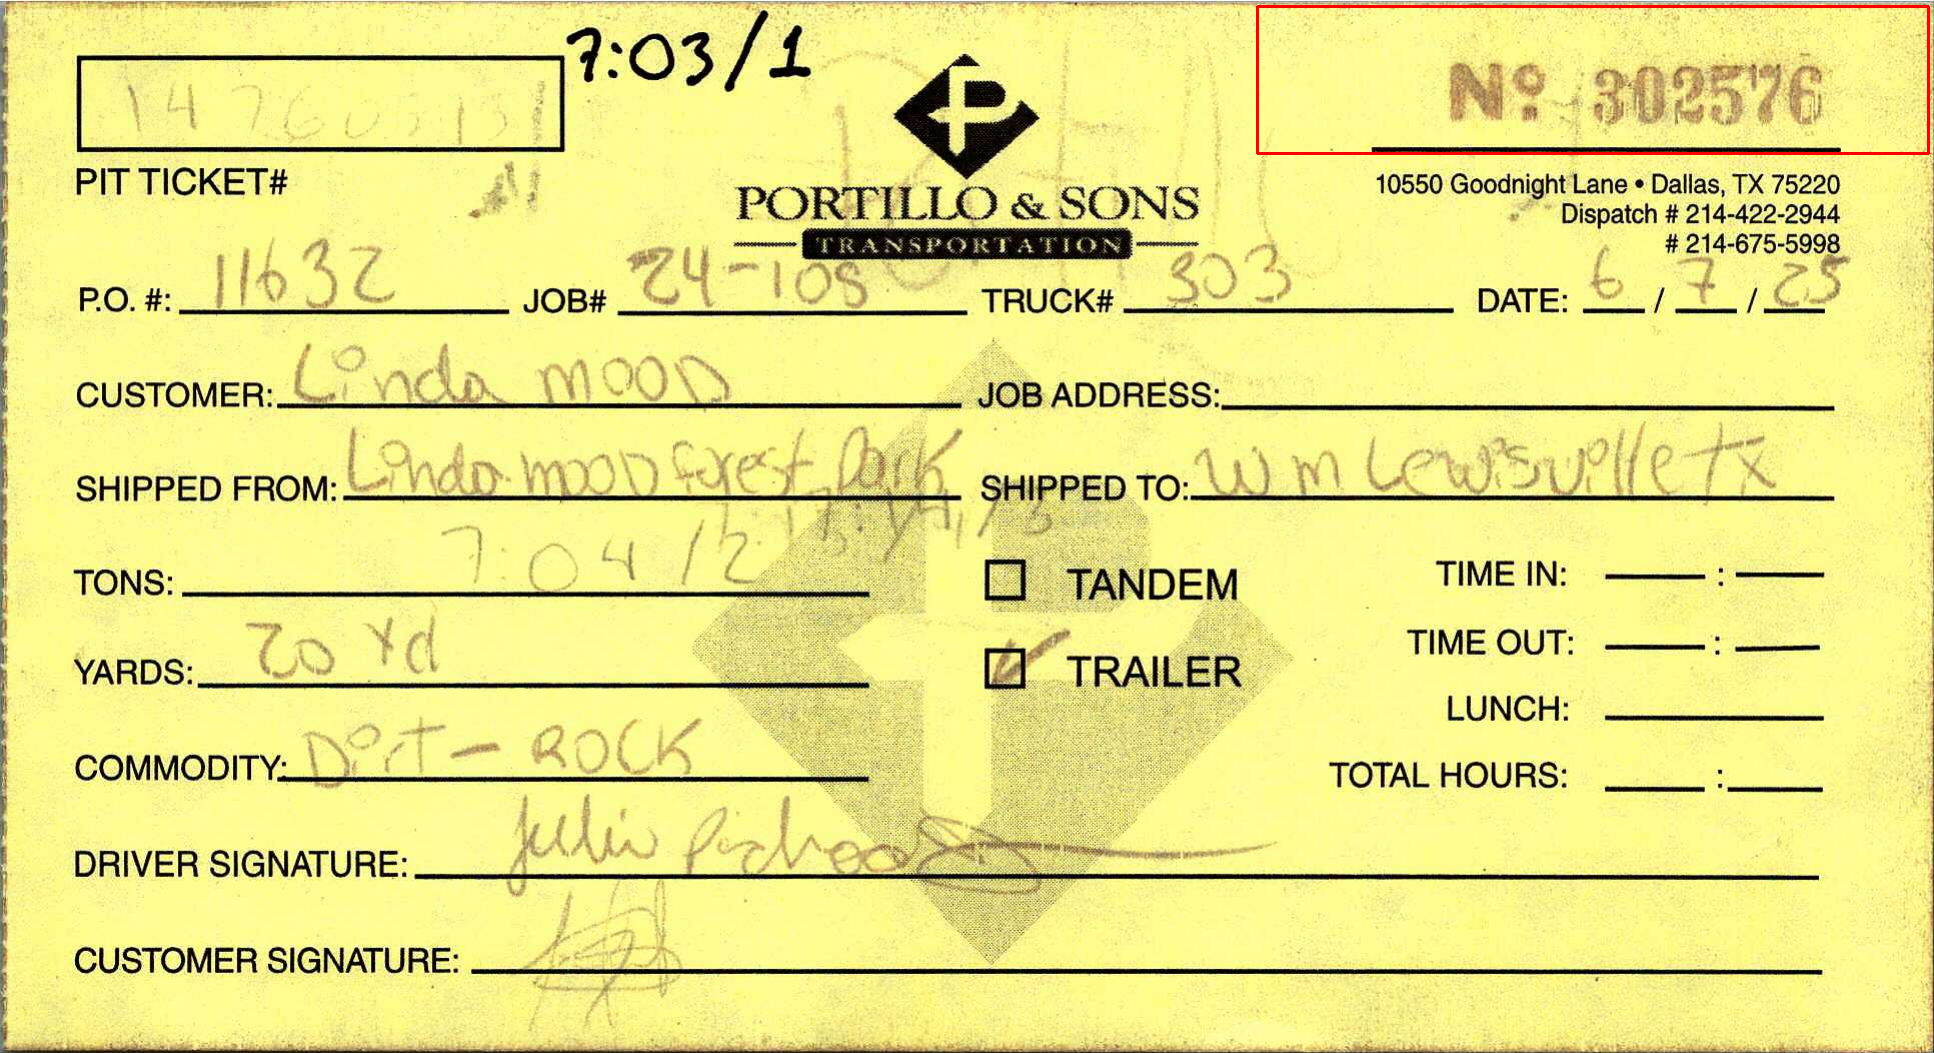 7:03/1
Nº 302576
PIT TICKET#
PORTILLO & SONS
TRANSPORTATION
10550 Goodnight Lane • Dallas, TX 75220
Dispatch # 214-422-2944
# 214-675-5998
P.O. #: 11632 JOB# 24-108 TRUCK# 303 DATE: 6 / 7 / 25
CUSTOMER: Linda MOOD JOB ADDRESS:
SHIPPED FROM: Linda mood forest Park SHIPPED TO: W m Lewisville TX
TONS: 7:04/2 TANDEM TIME IN: :
YARDS: 20 Yd TRAILER TIME OUT: :
LUNCH:
COMMODITY: Dirt - ROCK TOTAL HOURS: :
DRIVER SIGNATURE: Julio
CUSTOMER SIGNATURE: